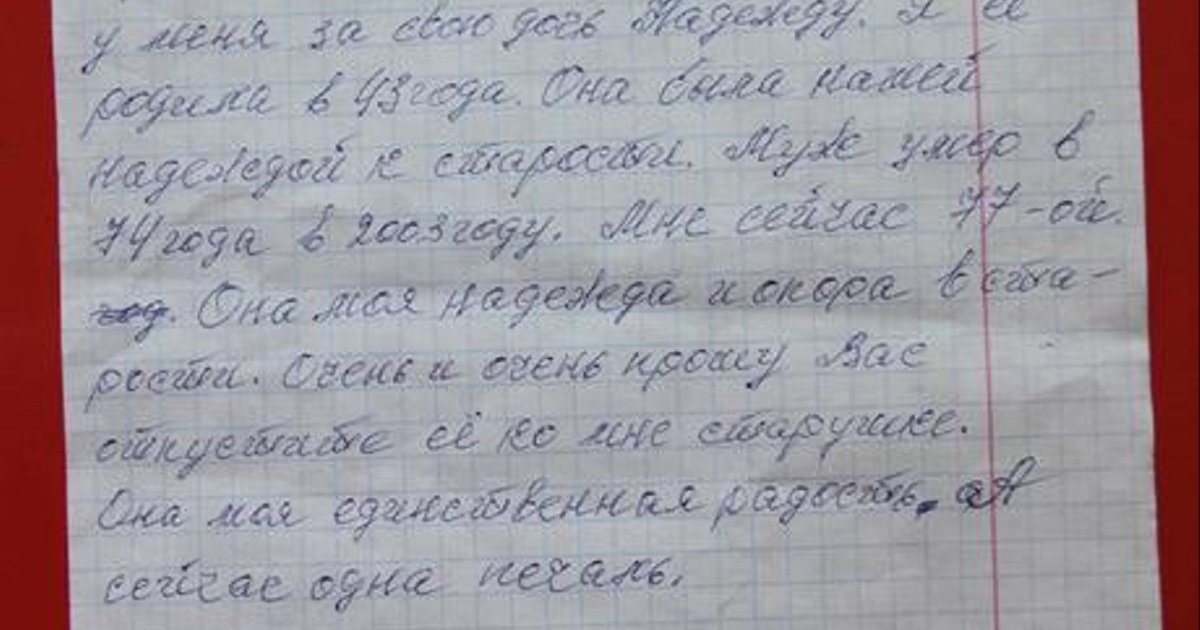 у меня за свою дочь Надежду. Я её
родила в 43 года. Она была нашей
надеждой к старости. Муж умер в
74 года в 2003 году. Мне сейчас 77-ой.
год. Она моя надежда и опора в ста-
рости. Очень и очень прошу Вас
отпустите её ко мне старушке.
Она моя единственная радость, а
сейчас одна печаль.